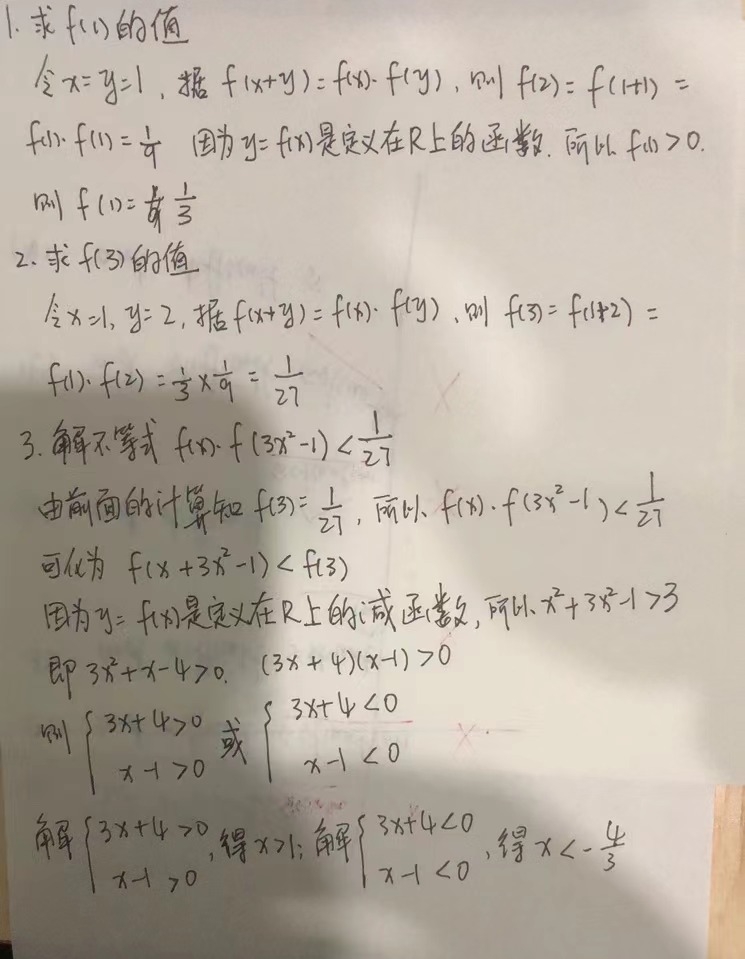 1. 求 f(1) 的值
令 x=y=1, 据 f(x+y)=f(x)·f(y), 则 f(2)=f(1+1)=
f(1)·f(1)=1/9 因为 y=f(x) 是定义在R上的函数. 所以 f(1)>0.
则 f(1)= 1/3
2. 求 f(3) 的值
令 x=1, y=2, 据 f(x+y)=f(x)·f(y), 则 f(3)=f(1+2)=
f(1)·f(2)=1/3×1/9=1/27
3. 解不等式 f(x)·f(3x²-1)<1/27
由前面的计算知 f(3)=1/27, 所以 f(x)·f(3x²-1)<1/27
可化为 f(x+3x²-1)<f(3)
因为 y=f(x) 是定义在R上的减函数, 所以 x²+3x²-1>3
即 3x²+x-4>0. (3x+4)(x-1)>0
则 { 3x+4>0 或 { 3x+4<0
x-1>0 x-1<0
解 { 3x+4>0 , 得 x>1; 解 { 3x+4<0 , 得 x<-4/3
x-1>0 x-1<0